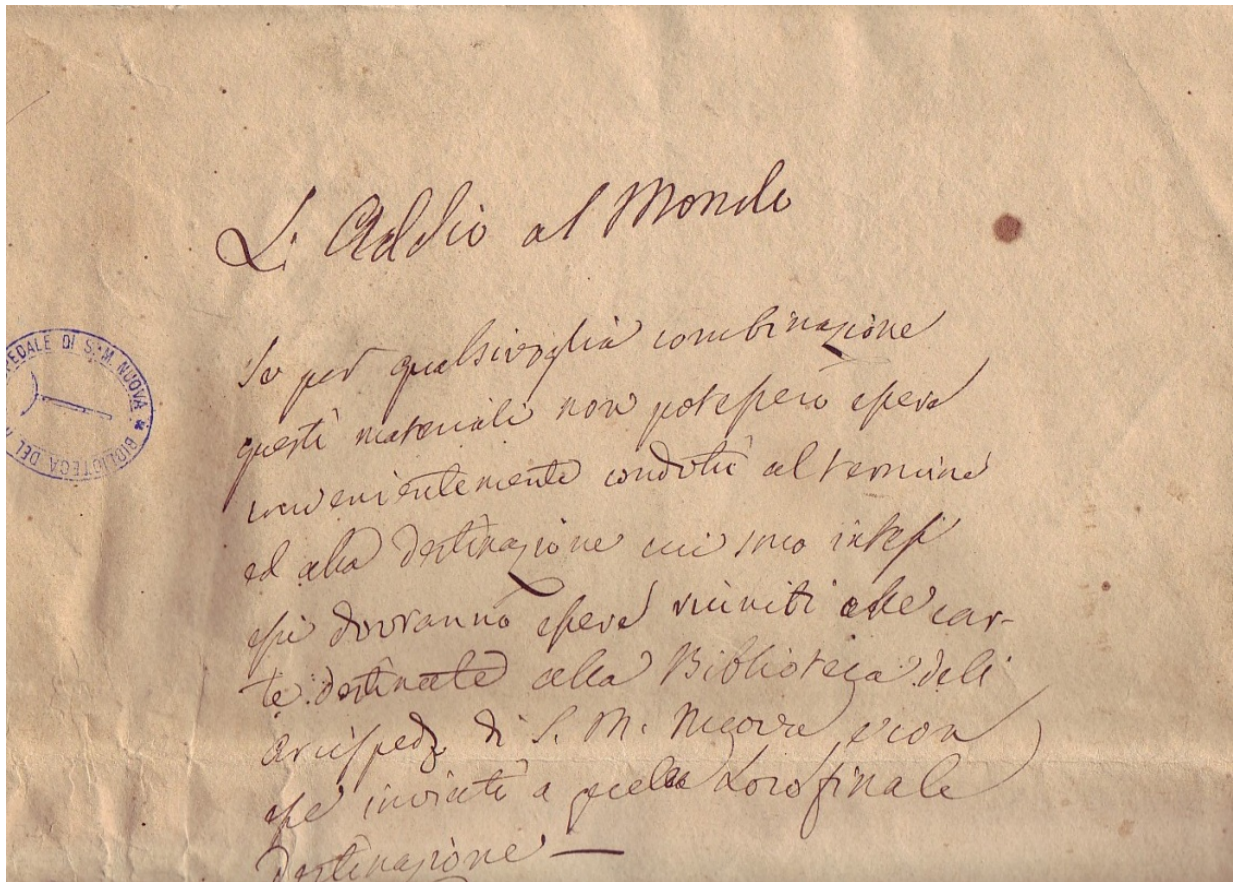 L' Addio al Mondo
Se per qualsivoglia combinazione
questi materiali non potessero essere
convenientemente condotti al termine
ed alla destinazione cui sono intesi
essi dovranno essere riuniti alle car-
te destinate alla Biblioteca dell
arcisped. di S. M. Nuova e con
esse inviati a quella Loro finale
destinazione —
SPEDALE DI S. M. NUOVA * BIBLIOTECA DEL